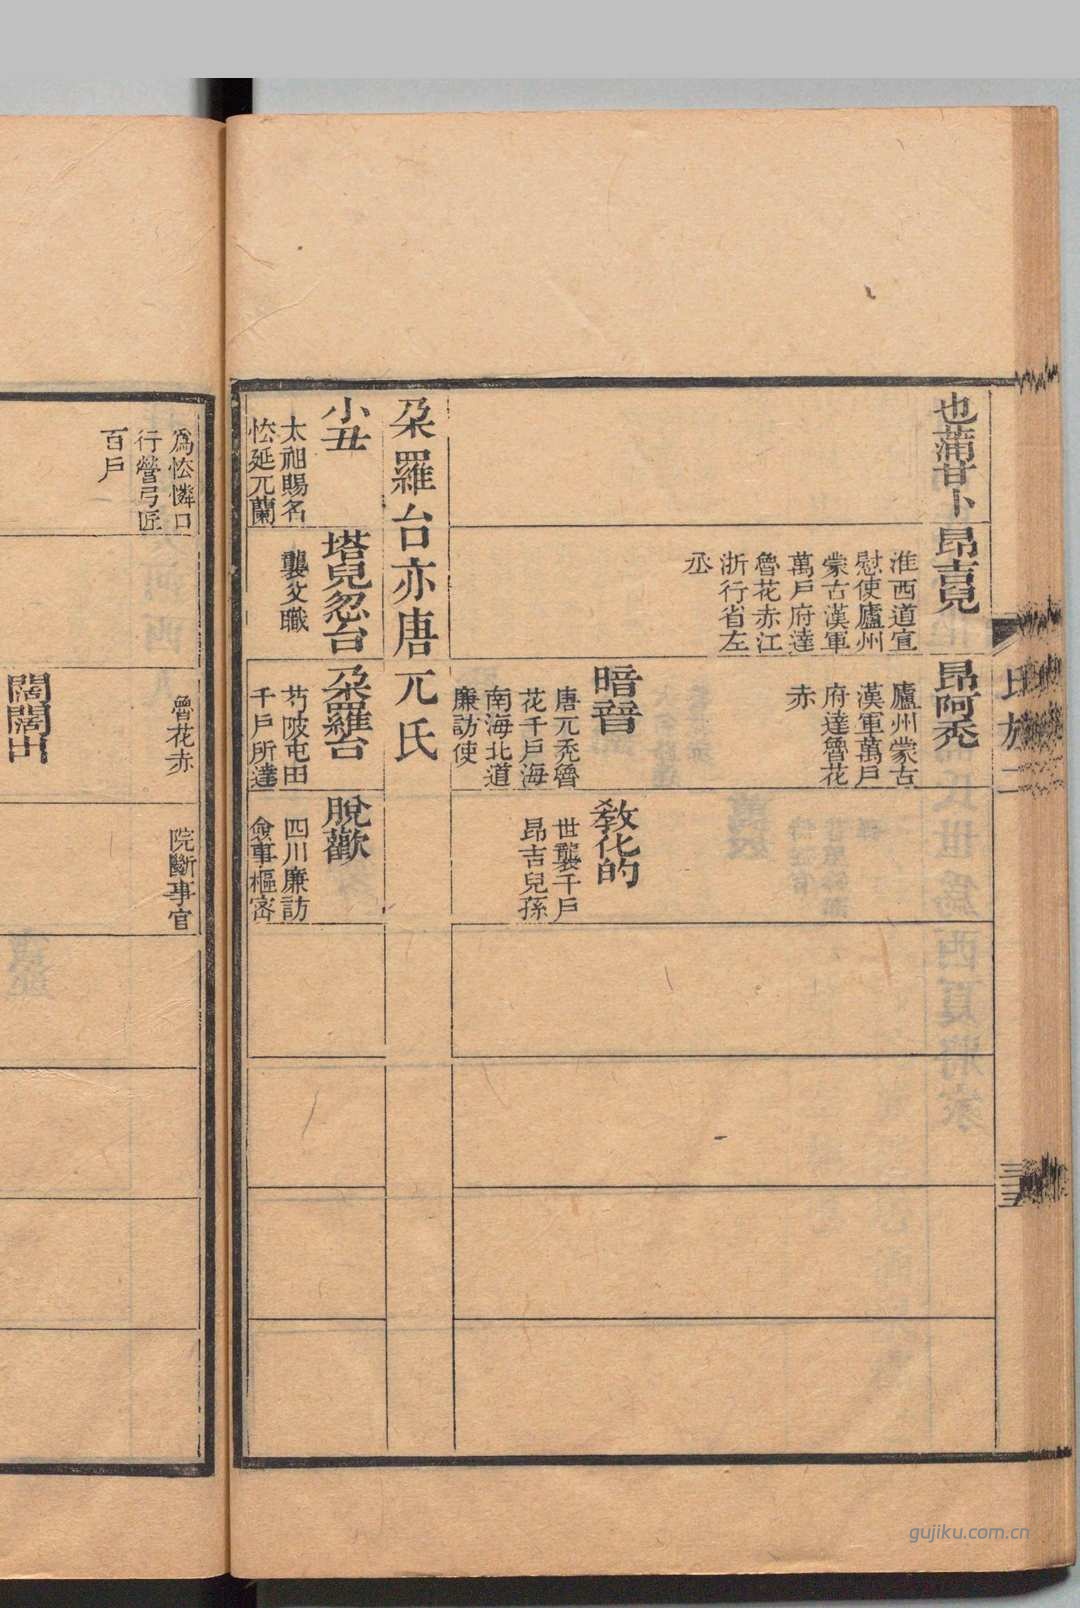 也蒲甘卜
昂吉兒
淮西道宣
慰使廬州
蒙古漢軍
萬戶府達
魯花赤江
浙行省左
丞
昂阿禿
廬州蒙古
漢軍萬戶
府達魯花
赤
暗普
唐兀禿魯
花千戶海
南海北道
廉訪使
教化的
世襲千戶
昂吉兒孫
朶羅台亦唐兀氏
小丑
太祖賜名
怯延兀蘭
塔兒忽台
襲父職
朶羅台
芍陂屯田
千戶所達
脫歡
四川廉訪
僉事樞密
爲怯憐口
行營弓匠
百戶
魯花赤
闊闊出
院斷事官
氏族二
三十五
gujiku.com.cn